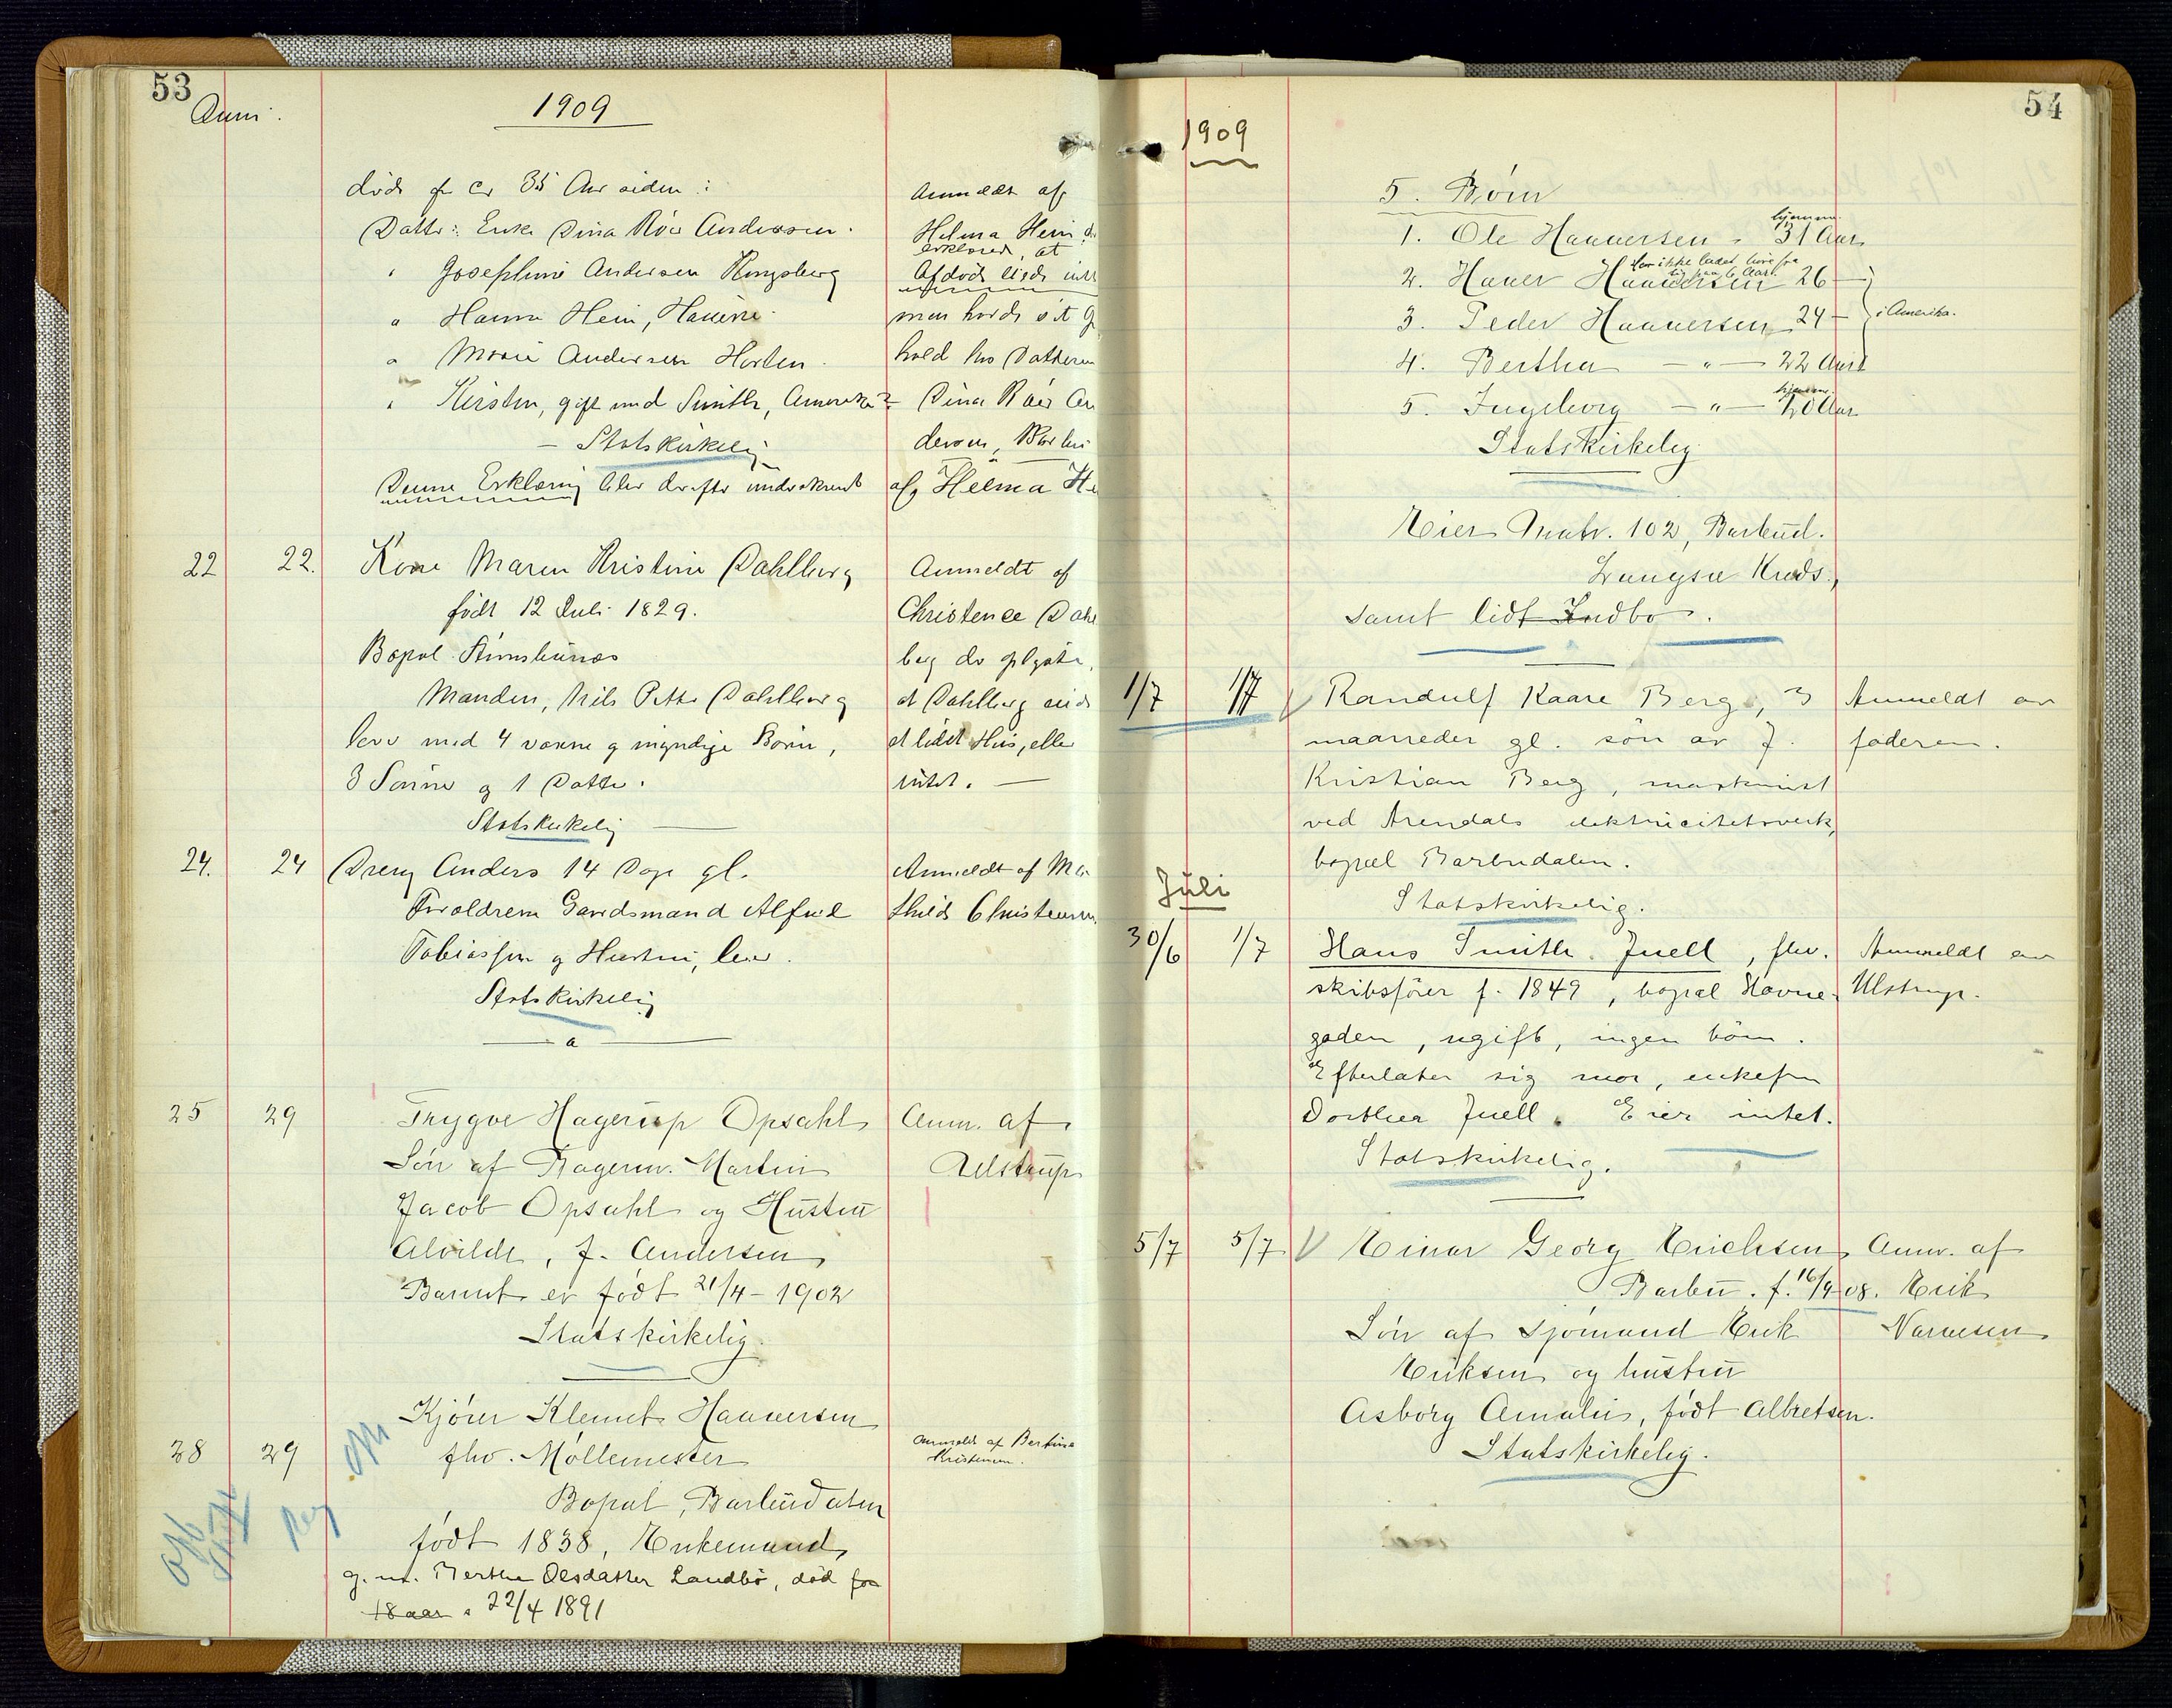 53
Juni.
1909
død for ca 35 Aar siden:
Datter: Enke Dina Roer Andersen.
" Josephine Andersen Kongsberg
" Hanna Hein, Havene
" Marie Andersen Horten.
" Kirsten, gift med Smith, Amerika?
- Statskirkelig
Denne Erklæring blev derefter underskrevet
Anmeldt af
Helma Hein, der
erklæred, at
Afdøde eied intet
men havde sit Op
hold hos Datteren
Dina Roer An
dersen, Barbu
af Helma He
22 22. Kone Maren Kristine Dahlberg
født 12 Juli 1829.
Bopæl Strømsbunes
Manden, Nils Petter Dahlberg
lever med 4 voxne og myndige Børn,
3 Sønner og 1 Datter.
Statskirkelig
Anmeldt af
Christence Dahl
berg der oplyste,
at Dahlberg eied
et lidet Hus, eller
intet. —
24. 24 Dreng Anders 14 Dage gl.
Forældrene Gaardsmand Alfred
Tobiassen og Hustru, lever.
Statskirkelig
Anmeldt af Ma
thilde Christensen
25 29 Trygve Hagerup Opsahl
Søn af Bagerm. Martin
Jacob Opsahl og Hustru
Alvilde, f. Andersen
Barnet er født 21/4 - 1902
Statskirkelig.
Anm. af
Ulstrup
28 29 Kjøner Klemet Haaversen
fhv. Møllemester
Bopæl, Barbudalen
født 1838, Enkemand,
g. m. Berthe Olsdatter Landbø, død for
18 aar. 22/4 1891
Anmeldt af Bertine
Kristensen.
54
1909
5. Børn
1. Ole Haaversen - 31 Aar
hjemme
2. Haaver Haaversen 26 —
har ikke ladet høre fra
sig paa 6 Aar.
3. Peder Haaversen 24 —
i Amerika.
4. Bertha — " — 22 Aar
5. Ingeborg — " — 20 Aar
hjemme
Statskirkelig
Eier Matr. 102, Barbud.
Langsæ Kreds.,
samt lidt Indbo.
1/7 1/7 Randulf Kaare Berg, 3
maaneder gl. søn av J.
Kristian Berg, maskinist
ved Arendals elektricitetsverk,
bopæl Barbudalen.
Statskirkelig.
Anmeldt av
faderen.
Juli
30/6 1/7 Hans Smith Juell, fhv.
skibsfører f. 1849, bopæl Havne
gaden, ugift, ingen børn.
Efterlater sig mor, enkefru
Dorthea Juell. Eier intet.
Statskirkelig.
Anmeldt av
Ulstrup.
5/7 5/7 Einar Georg Erichsen
Barbu. f. 16/9 08.
Søn af Sjømand Erik
Eriksen og hustru
Asborg Amalie, født Albretsen.
Statskirkelig.
Anm. af
Erik
Narvesen